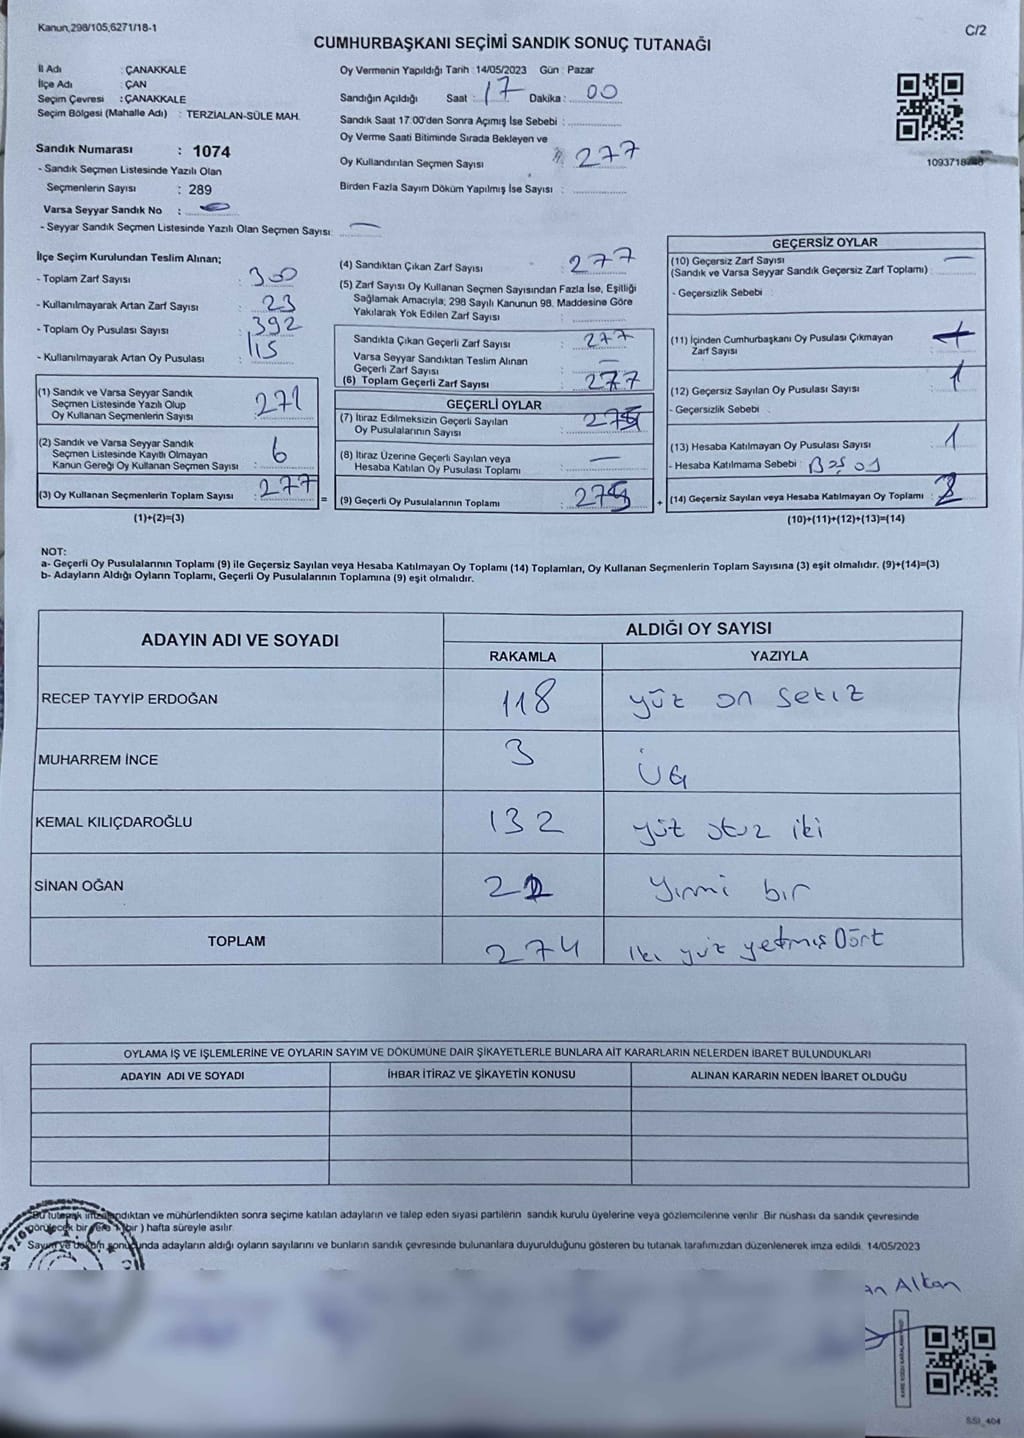 Kanun,298/105,6271/18-1
C/2
CUMHURBAŞKANI SEÇİMİ SANDIK SONUÇ TUTANAĞI
İl Adı : ÇANAKKALE
İlçe Adı : ÇAN
Seçim Çevresi : ÇANAKKALE
Seçim Bölgesi (Mahalle Adı) : TERZİALAN-SÜLE MAH.
Sandık Numarası : 1074
- Sandık Seçmen Listesinde Yazılı Olan
Seçmenlerin Sayısı : 289
Varsa Seyyar Sandık No :
- Seyyar Sandık Seçmen Listesinde Yazılı Olan Seçmen Sayısı:
Oy Vermenin Yapıldığı Tarih : 14/05/2023 Gün : Pazar
Sandığın Açıldığı Saat : 17 Dakika : 00
Sandık Saat 17.00'den Sonra Açımış İse Sebebi :
Oy Verme Saati Bitiminde Sırada Bekleyen ve
Oy Kullandırılan Seçmen Sayısı 277
Birden Fazla Sayım Döküm Yapılmış İse Sayısı :
İlçe Seçim Kurulundan Teslim Alınan;
- Toplam Zarf Sayısı : 300
- Kullanılmayarak Artan Zarf Sayısı : 23
- Toplam Oy Pusulası Sayısı : 392
- Kullanılmayarak Artan Oy Pusulası : 115
(1) Sandık ve Varsa Seyyar Sandık
Seçmen Listesinde Yazılı Olup
Oy Kullanan Seçmenlerin Sayısı : 271
(2) Sandık ve Varsa Seyyar Sandık
Seçmen Listesinde Kayıtlı Olmayan
Kanun Gereği Oy Kullanan Seçmen Sayısı : 6
(3) Oy Kullanan Seçmenlerin Toplam Sayısı : 277 =
(1)+(2)=(3)
(4) Sandıktan Çıkan Zarf Sayısı : 277
(5) Zarf Sayısı Oy Kullanan Seçmen Sayısından Fazla İse, Eşitliği
Sağlamak Amacıyla; 298 Sayılı Kanunun 98. Maddesine Göre
Yakılarak Yok Edilen Zarf Sayısı :
Sandıkta Çıkan Geçerli Zarf Sayısı : 277
Varsa Seyyar Sandıktan Teslim Alınan
Geçerli Zarf Sayısı :
(6) Toplam Geçerli Zarf Sayısı : 277
GEÇERLİ OYLAR
(7) İtiraz Edilmeksizin Geçerli Sayılan
Oy Pusulalarının Sayısı :
(8) İtiraz Üzerine Geçerli Sayılan veya
Hesaba Katılan Oy Pusulası Toplamı :
(9) Geçerli Oy Pusulalarının Toplamı : +
GEÇERSİZ OYLAR
(10) Geçersiz Zarf Sayısı
(Sandık ve Varsa Seyyar Sandık Geçersiz Zarf Toplamı) :
- Geçersizlik Sebebi :
(11) İçinden Cumhurbaşkanı Oy Pusulası Çıkmayan
Zarf Sayısı :
(12) Geçersiz Sayılan Oy Pusulası Sayısı : 1
- Geçersizlik Sebebi :
(13) Hesaba Katılmayan Oy Pusulası Sayısı : 1
- Hesaba Katılmama Sebebi :
(14) Geçersiz Sayılan veya Hesaba Katılmayan Oy Toplamı :
(10)+(11)+(12)+(13)=(14)
NOT:
a- Geçerli Oy Pusulalarının Toplamı (9) ile Geçersiz Sayılan veya Hesaba Katılmayan Oy Toplamı (14) Toplamları, Oy Kullanan Seçmenlerin Toplam Sayısına (3) eşit olmalıdır. (9)+(14)=(3)
b- Adayların Aldığı Oyların Toplamı, Geçerli Oy Pusulalarının Toplamına (9) eşit olmalıdır.
ADAYIN ADI VE SOYADI
ALDIĞI OY SAYISI
RAKAMLA YAZIYLA
RECEP TAYYİP ERDOĞAN 118 yüz on sekiz
MUHARREM İNCE 3 Üç
KEMAL KILIÇDAROĞLU 132 yüz otuz iki
SİNAN OĞAN 21 Yirmi bir
TOPLAM 274 iki yüz yetmiş Dört
OYLAMA İŞ VE İŞLEMLERİNE VE OYLARIN SAYIM VE DÖKÜMÜNE DAİR ŞİKAYETLERLE BUNLARA AİT KARARLARIN NELERDEN İBARET BULUNDUKLARI
ADAYIN ADI VE SOYADI İHBAR İTİRAZ VE ŞİKAYETİN KONUSU ALINAN KARARIN NEDEN İBARET OLDUĞU
Bu tutanak imzalandıktan ve mühürlendikten sonra seçime katılan adayların ve talep eden siyasi partilerin sandık kurulu üyelerine veya gözlemcilerine verilir. Bir nüshası da sandık çevresinde
görülecek bir yere 1 (bir) hafta süreyle asılır.
Sayım ve döküm sonucunda adayların aldığı oyların sayılarını ve bunların sandık çevresinde bulunanlara duyurulduğunu gösteren bu tutanak tarafımızdan düzenlenerek imza edildi. 14/05/2023
an Altan
SSİ_404